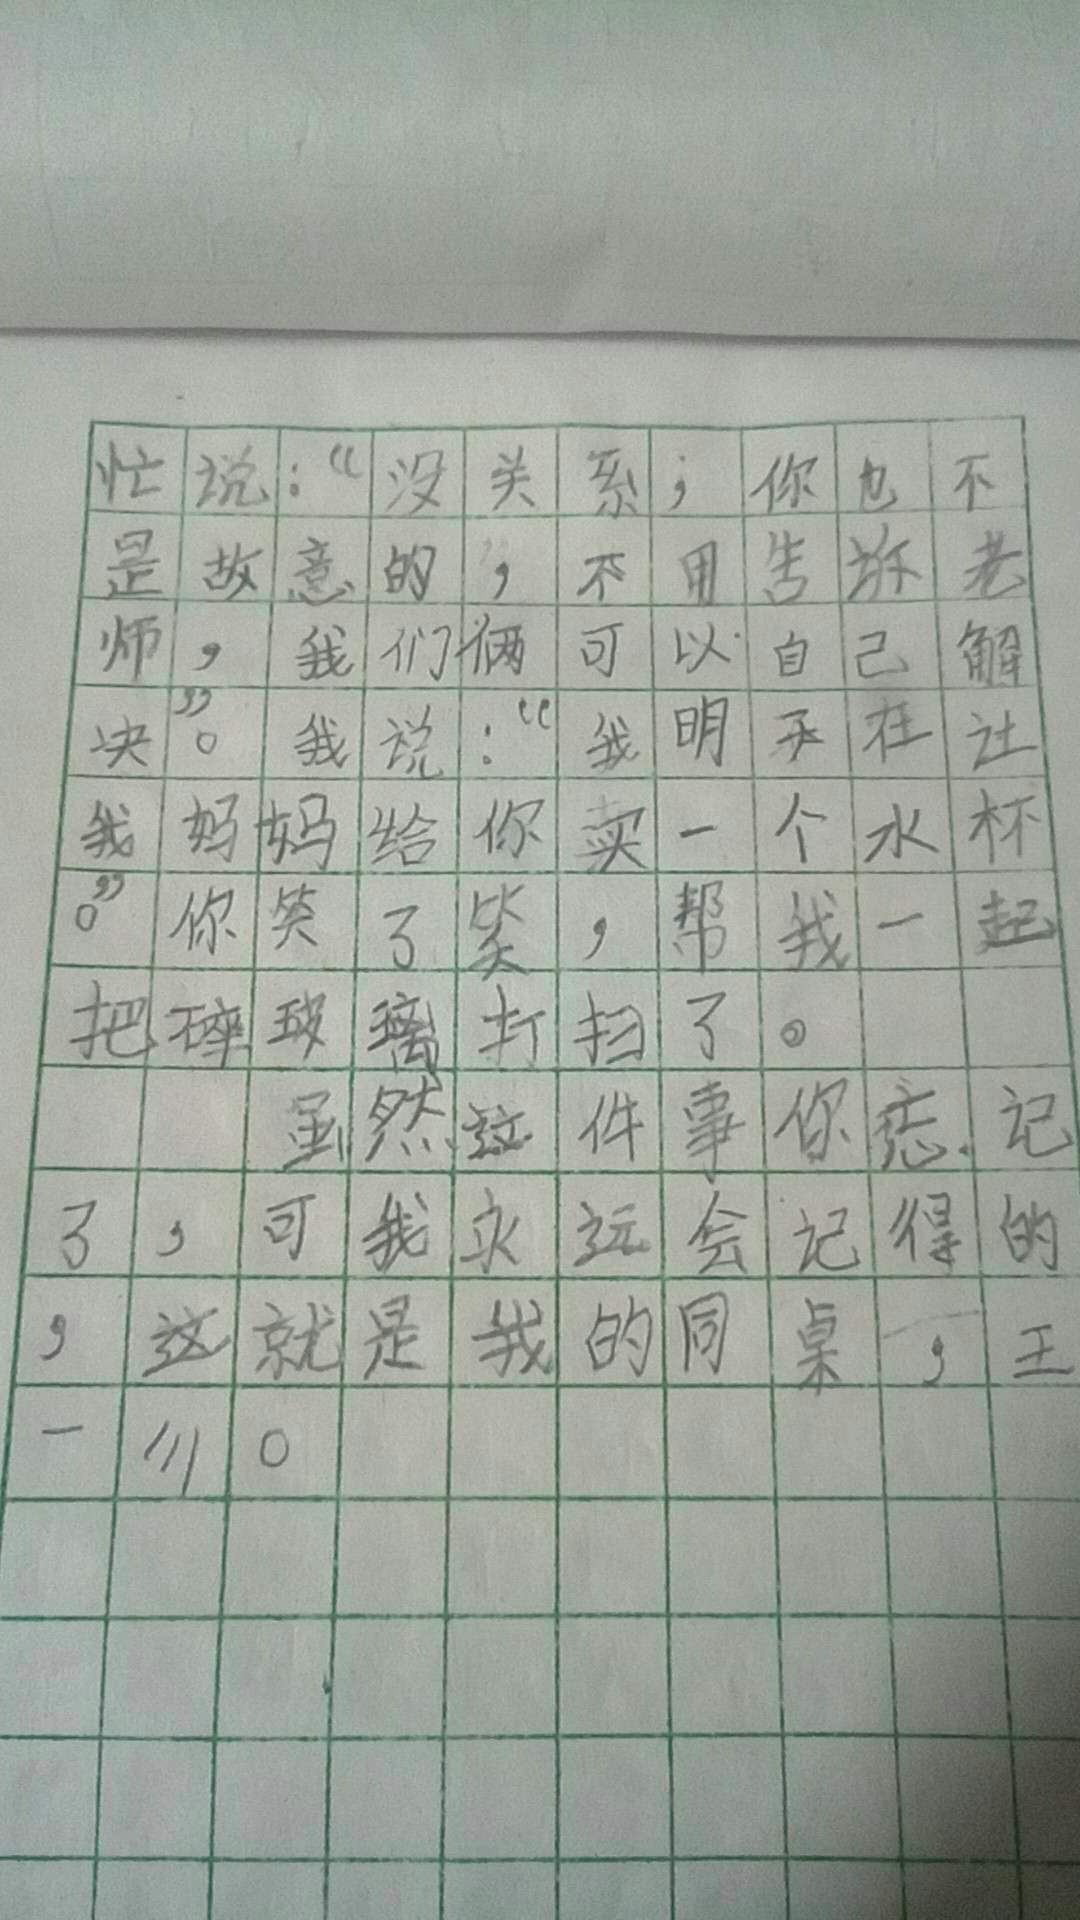 忙说：“没关系；你也不
是故意的，不用告诉老
师，我们俩可以自己解
决”。我说：“我明天在让
我妈妈给你卖一个水杯
。”你笑了笑，帮我一起
把碎玻璃打扫了。
虽然这件事你忘记
了，可我永远会记得的
，这就是我的同桌，王
一川。